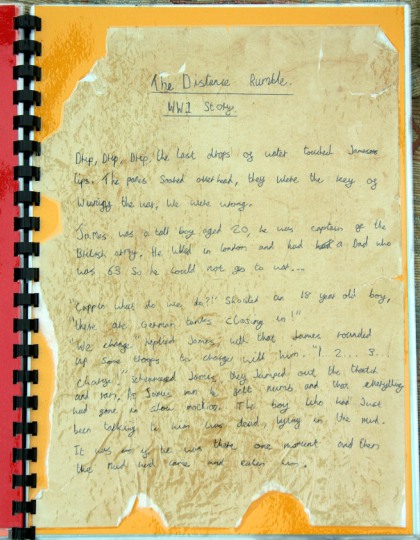 The Distence Rumble.
WW1 Story
Drip, Drip, Drip, the last drops of water touched James
lips. The planes soared overhead, they were the key of
winning the war, we were wrong.
James was a tall boy aged 20, he was captain of the
British army, He lived in London and had a Dad who
was 63 so he could not go to war...
"Captin what do we do?!" Shouted an 18 year old boy,
"there are German tanks closing in!"
"We charge" replied James, with that James rounded
up some troops to charge with him. "1... 2... 3...
charge." James, they jumped out the trench
and ran. As James ran he felt numb and that everything
had gone in slow motion. The boy who had Just
been talking to him was dead, lying in the mud.
It was as if he was there one moment and then
the mud had came and eaten him.